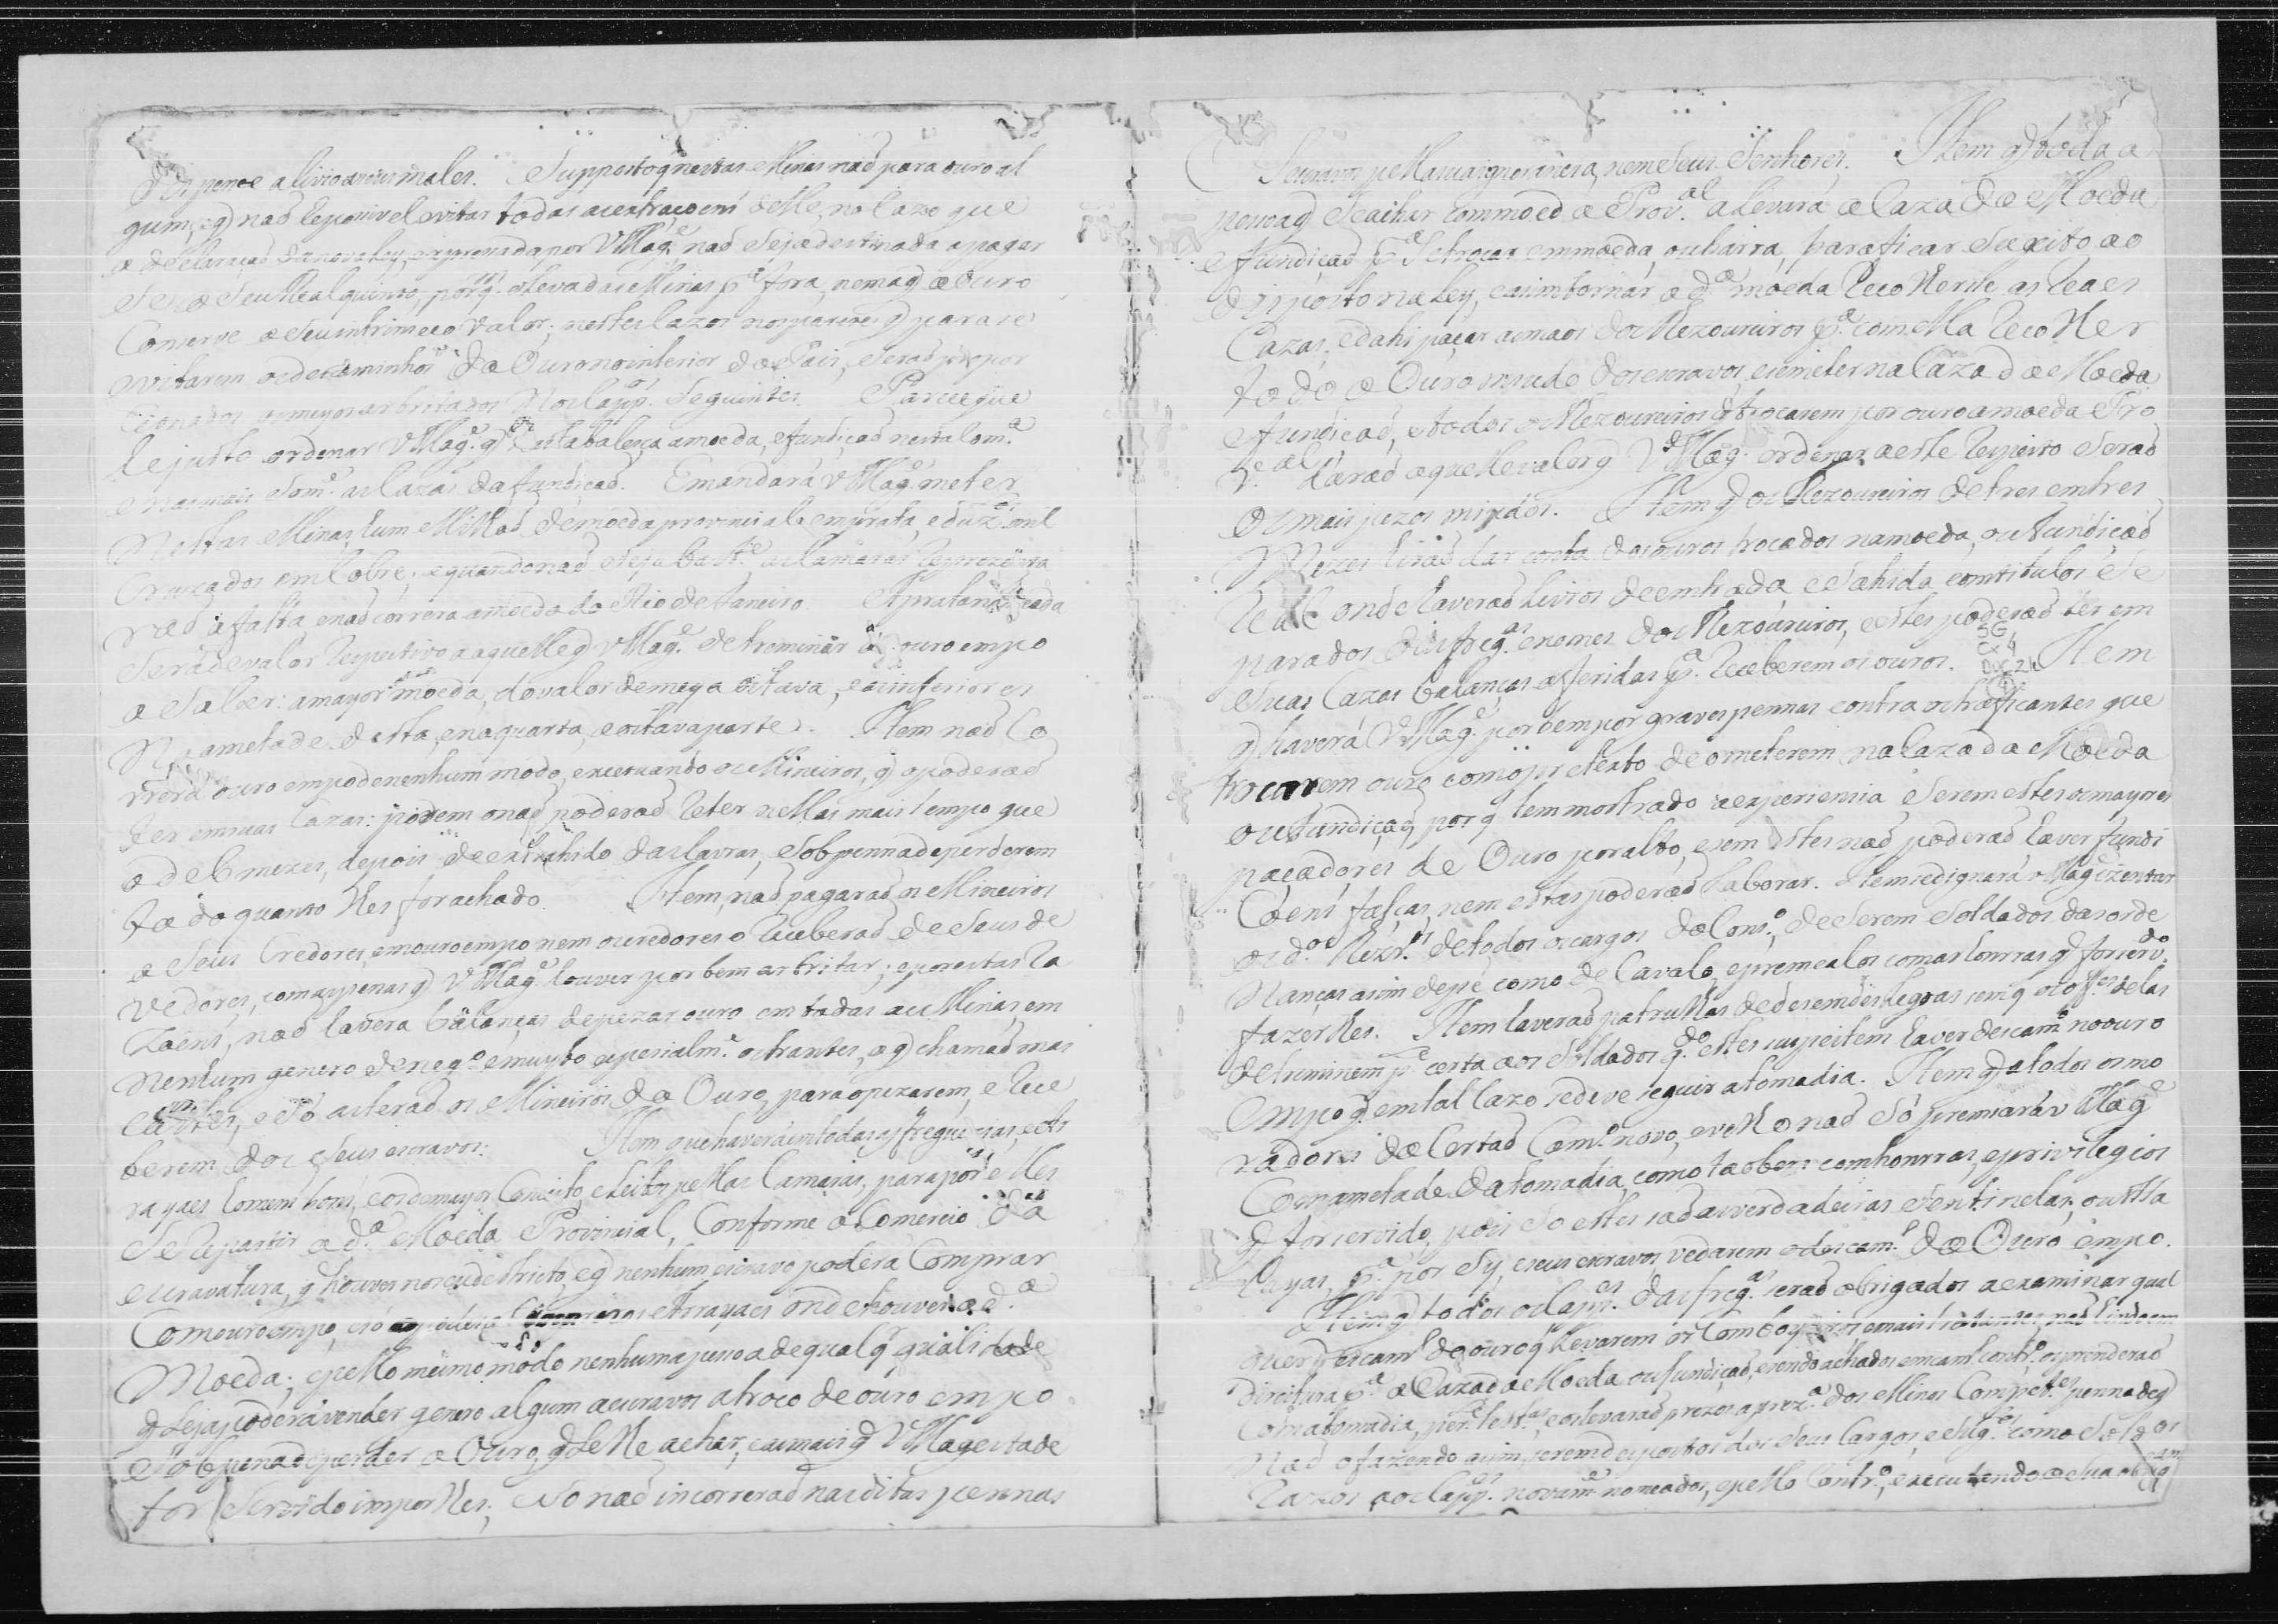 Dispence alivio aseus males. Suppostoq̃ nestas Minas naõ para ouro al
gum, eq̃ naõ he ponivel evitar todas as extracoens delle, no cazo que
a declaraçaõ da nova ley, expressada por VMag.e naõ seja destinada apagar
se o seu Real quinto, porq̃ elevadas Minas p.a fora, nem aq̃ o ouro
Conserve o seu intrinseco valor; nestes cazos nos parece q̃ para se
evitarem os descaminhos do Ouro no interior do Pais, seraõ propor
cionados os meyos arbitrados Nos Capp.os Seguintes. Parece que
he justo ordenar VMag.e q̃ se estabaleça a moeda, e fundiçaõ nesta Com.a
e nas mais Som.e as Cazas da fundiçaõ. E mandará VMag.e meter
Nestas Minas hum Milhaõ de moeda provincial em prata, e duz.os mil
Cruzados em Cobre; e quando naõ seja bast.e as Camaras reprezentá
raõ a falta, e naõ correrá a moeda do Rio de Janeiro. A prata
Será de valor respectivo a aquelle q̃ VMag.e detreminar ao ouro em po
a Saber: a mayor moeda, do valor de meya oitava, e as inferiores
Na ametade desta, e na quarta, e oitava parte. Item naõ Co
rrerá ouro em po de nenhum modo, excetuando os Mineiros, q̃ o poderaõ
ter em suas Cazas: porem o naõ poderaõ reter nellas mais tempo que
o de 6 mezes, depois de extrahido das lavras, e sob penna de perderem
todo quanto lhes for achado. Item, naõ pagaraõ os Mineiros
a Seus Credores, em ouro em po nem os credores o receberaõ de Seus de
vedores, com as penas q̃ VMag.e houver por bem arbitrar; e por estas ra
zoens, naõ haverá balanças de pezar ouro em todas as Minas, em
Nenhum genero de neg.o e muyto especialm.e os trantes, a q̃ chamaõ mas
cates, e só as teraõ os Mineiros do Ouro, para o pezarem, e rece
berem dos Seus escravos. Item que haverá em todas as freguezias, e ar
rayaes homens bons, e os de mayor Conceito, eleitos pellas Camaras, para por elles
Se repartir a d.a Moeda Provincial, Conforme o Comercio da
escravatura, q̃ houver no seu destricto, e q̃ nenhum escravo poderá Comprar
Com ouro em po, e só Arrayaes onde houver a d.a
Moeda; e pello mesmo modo nenhuma pessoa de qualq.r qualidade
q̃ seja, poderá vender genero algum a escravos a troco de ouro em po
Sob pena de perder o Ouro, q̃ se lhe achar, e as mais q̃ VMagestade
for Servido impor lhes; e so naõ incorreraõ nas ditas pennas
Escravos pella sua ignorancia, nem Seus Senhores. Item q̃ toda a
pessoa q̃ se achar com moeda Prov.al a levará a Caza da Moeda
e fundiçaõ p.a Se trocar em moeda, ou barra, para ficar Sugeito ao
disposto na ley, e asim tornar a d.a moeda recolherse as reaes
Cazas, e dahi paçar as maos dos Thezoureiros p.a com ella recolher
todo o Ouro miudo dos escravos, e o meter na Caza da Moeda
e fundiçaõ, e todos os Thezoureiros q̃ trocarem por ouro a moeda Pro
v.al daraõ aquelle valor q̃ VMag.e ordenar, a este respeito Seraõ
os mais pezos miudos. Item q̃ os Thezoureiros de tres em tres
Mezes hiraõ dar conta dos ouros trocados na moeda, ou fundiçaõ
real onde haverá Livros de entrada, e sahida, com titulos Se
parados das freg.as e nomes dos Thezoureiros, e estes poderaõ ter em
suas Cazas balanças afferidas p.a receberem os ouros. Item
SG
Cx 4
Doc 24
q̃ haverá VMag.e por bem por graves pennas contra os traficantes que
trocarem ouro com o pretexto de o meterem na Caza da Moeda
ou fundiçaõ, porq̃ tem mostrado a experiencia Serem estes os mayores
paçadores de Ouro por alto, e sem estes naõ poderaõ haver fundi
coens falças, nem estas poderaõ laborar. Item se dignará VMag.e izentar
os d.os Thezr.os de todos os cargos do Cons.o, de Serem Soldados das orde
Nanças asim de pe como de Cavalo, e premealos com as honrras q̃ for serv.do
fazerlhes. Item haveraõ patrulhas de des em des legoas sem q̃ os off.es delas
detreminem p.te certa aos Soldados q̃.do estes suspeitem haver descam.o no ouro
em po q̃ em tal cazo se deve seguir a tomadia. Item q̃ a todos os mo
radores do Certaõ Cam.o novo, e velho naõ só premiará VMag.e
Com ametade da tomadia, como taõbem com honrras, e privilegios
q̃ for servido, pois so estes saõ as verdadeiras Sentinelas, ou Ata
layas, p.a por sy, e seus escravos vedarem o descam.o do Ouro em po.
Item q̃ todos os Capp.es das freg.as seraõ obrigados a examinar qual
quer descam.o de ouro q̃ levarem os Comboyeiros, e mais viandantes, naõ hindo em
direitura p.a a Caza da Moeda ou fundiçaõ, e sendo achados em cam.o contr.o os prenderaõ
Com a tomadia, per.te test.as, e os levaraõ prezos a prez.a dos Menistros Compet.es penna de q̃
Naõ o fazendo asim, serem depostos dos Seus Cargos, e como
razos aos Capp.es novam.te nomeados, e pello Contr.o, executando a sua obrig